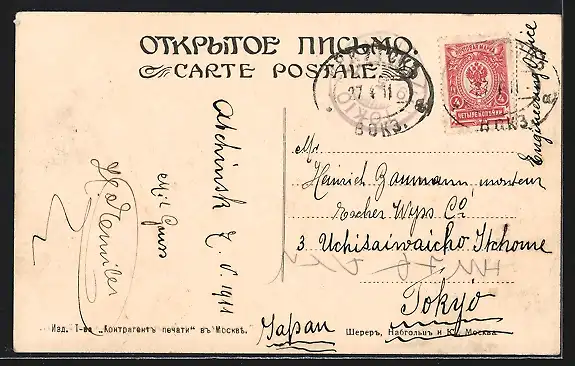 ОТКРЫТОЕ ПИСЬМО.
CARTE POSTALE.
27 4 11
ВОКЗ.
TOKIO
ПОЧТОВАЯ МАРКА
4 4
ЧЕТЫРЕ КОПѢЙКИ
ВОКЗ.
Engineering Office
Mr.
Heinrich Baumann, monteur
Escher Wyss Co
3. Uchisaiwaicho Itchome
Tokyo
Japan
Atchinsk 1911
Mit Gruss
Изд. Т-ва „Контрагентъ печати" въ Москвѣ.
Шереръ, Набгольцъ и Ко Москва